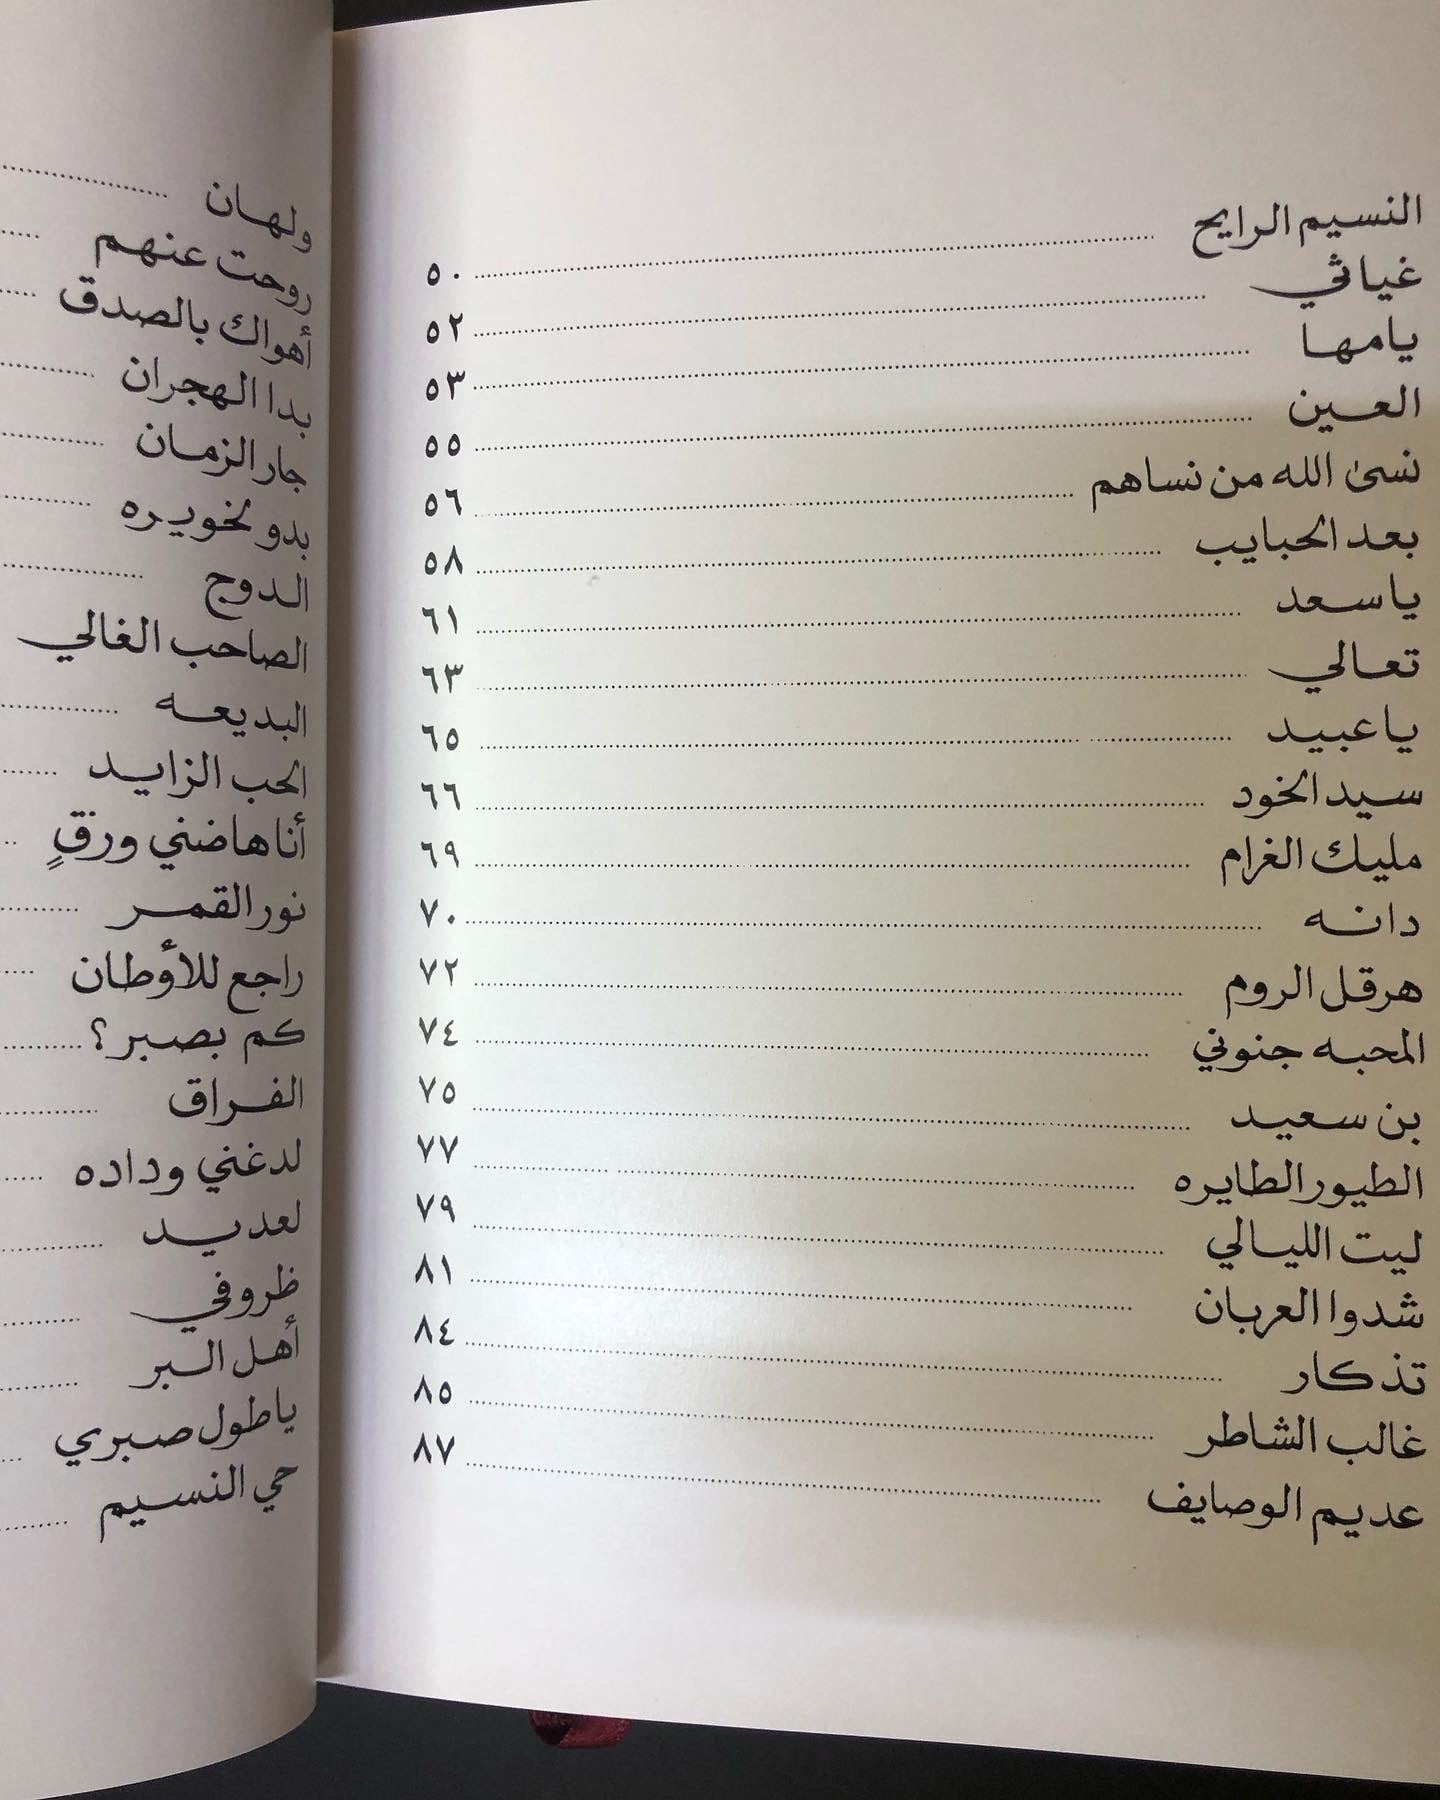 النسيم الرايح ٥٠
غياثي ٥٢
يامها ٥٣
العين ٥٥
نسىٰ الله من نساهم ٥٦
بعد الحبايب ٥٨
ياسعد ٦١
تعالي ٦٣
ياعبيد ٦٥
سيد الخود ٦٦
مليك الغرام ٦٩
دانه ٧٠
هرقل الروم ٧٢
المحبه جنوني ٧٤
بن سعيد ٧٥
الطيور الطايره ٧٧
ليت الليالي ٧٩
شدوا العربان ٨١
تذكار ٨٤
غالب الشاطر ٨٥
عديم الوصايف ٨٧
ولهان
روحت عنهم
أهواك بالصدق
بدا الهجران
جار الزمان
بدو لخويره
الدوج
الصاحب الغالي
البديعه
الحب الزايد
أنا هاضني ورقٍ
نور القمر
راجع للأوطان
كم بصبر؟
الفراق
لدغني وداده
لعديد
ظروفي
أهل البر
ياطول صبري
حي النسيم